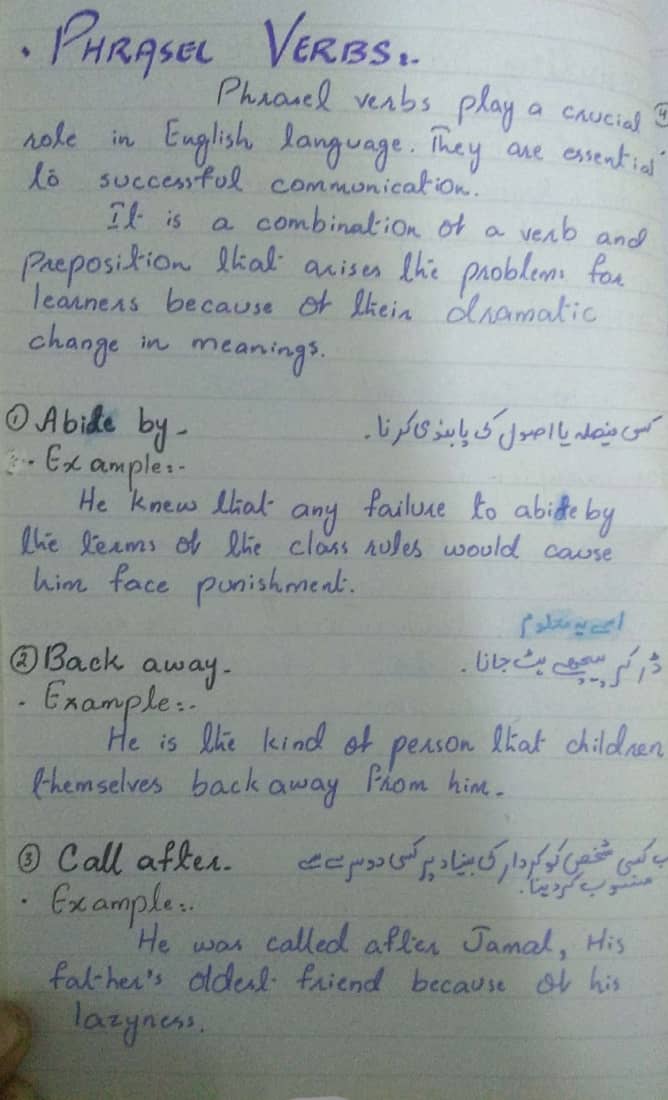 . PHRASEL VERBS:.
Phrasel verbs play a crucial
role in English language. They are essential
to successful communication.
It is a combination of a verb and
preposition that arises the problems for
learners because of their dramatic
change in meanings.
① Abide by -
کسی فیصلہ یا اصول کی پابندی کرنا۔
. Example:-
He knew that any failure to abide by
the terms of the class rules would cause
him face punishment.
② Back away -
ڈر کر پیچھے ہٹ جانا۔
. Example:-
He is the kind of person that children
themselves back away from him.
③ Call after -
کسی شخص کو کردار کی بنیاد پر کسی دوسرے سے
منسوب کر دینا۔
. Example:.
He was called after Jamal, His
father's oldest friend because of his
lazyness.